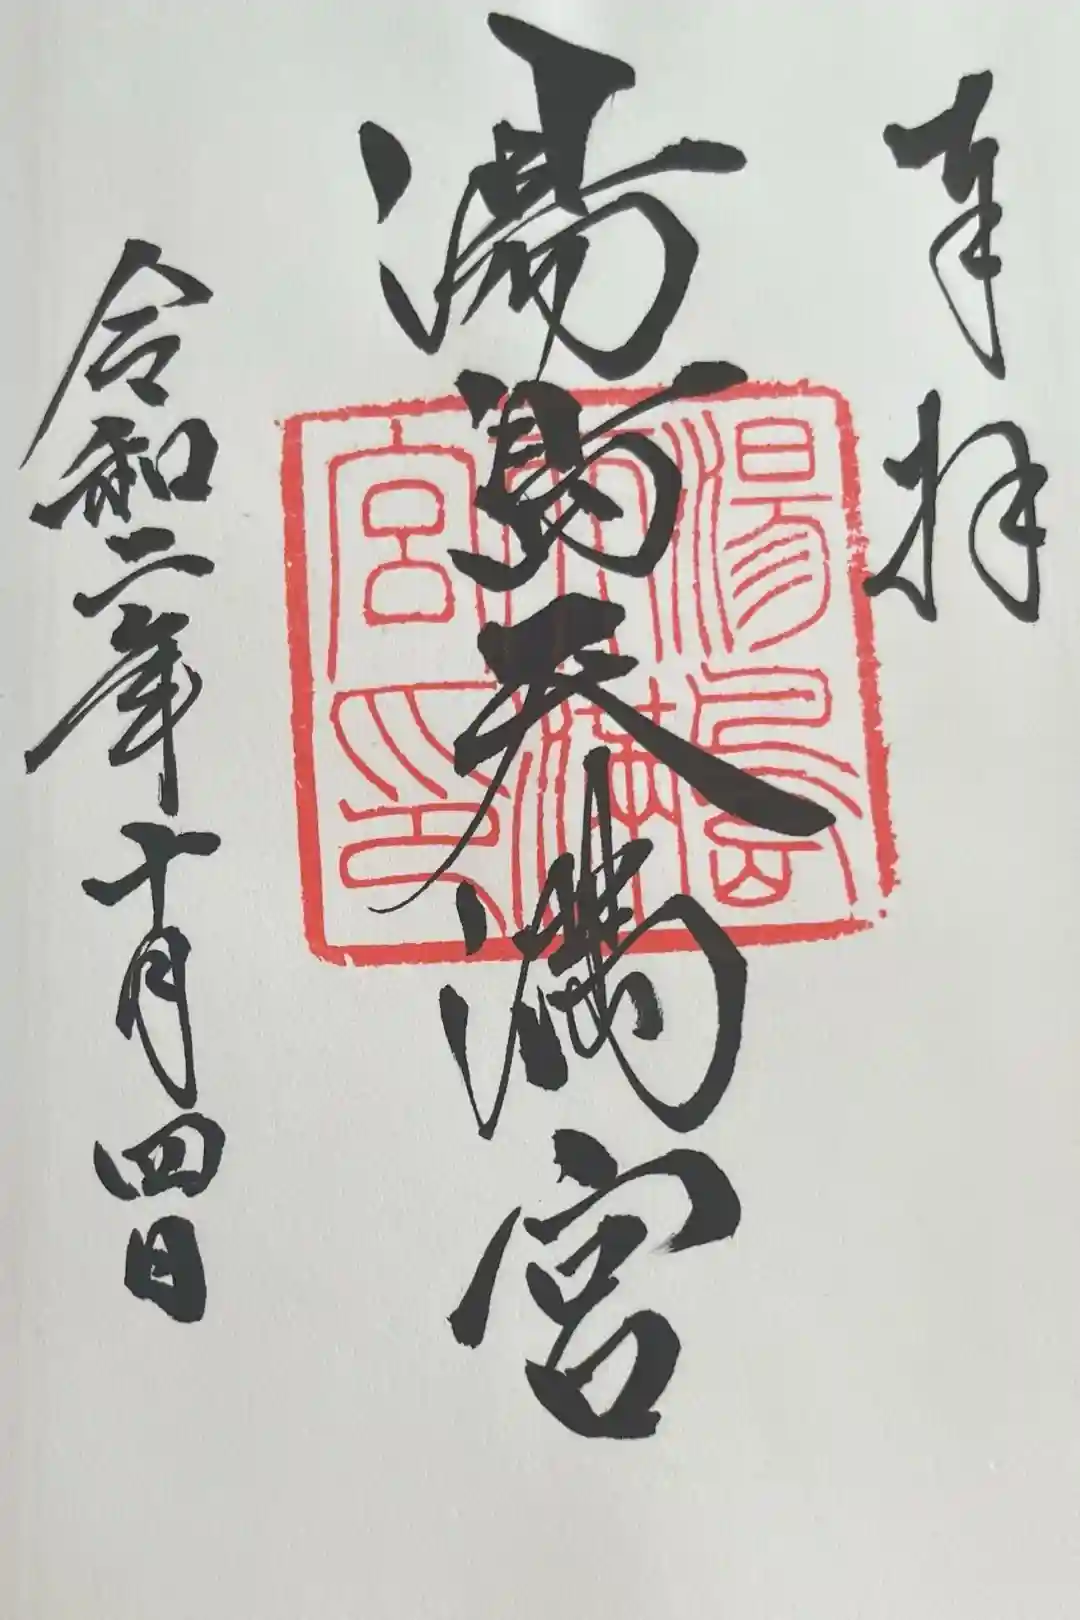 奉拝
湯島天満宮
湯島
天満
宮印
令和二年十月四日